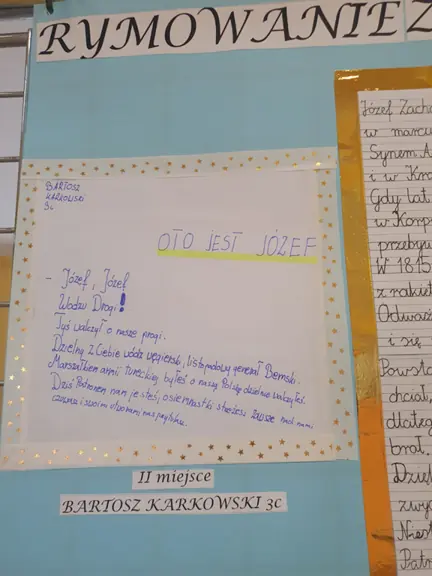 RYMOWANIE Z
BARTOSZ
KARKOWSKI
3c
OTO JEST JÓZEF
- Józef, Józef
Wodzu Drogi!
Tyś walczył o nasze progi.
Dzielny z Ciebie wódz węgierski, listopadowy generał Bemski.
Marszałkiem armii tureckiej byłeś o naszą Polskę dzielnie walczyłeś.
Dziś Patronem nam jesteś, osiemnastki strzeżesz zawsze nad nami
czuwasz i swoim
II miejsce
BARTOSZ KARKOWSKI 3c
Józef Zach
w marcu
Synem A
i w Kra
Gdy lat
w Korp
przebyw
W 1815
z rakiet
Odważ
i się
Powsta
chciał,
dlateg
brał.
Dziel
zwy
Niest
Patr